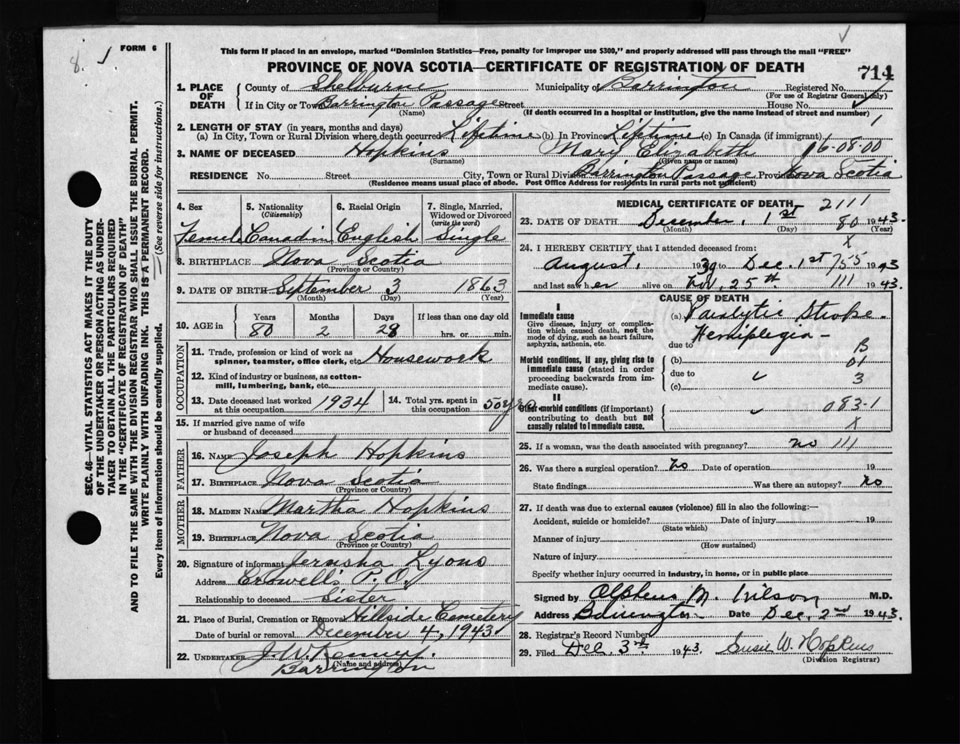 8. 1.
FORM 6
This form if placed in an envelope, marked "Dominion Statistics—Free, penalty for improper use $300," and properly addressed will pass through the mail "FREE"
PROVINCE OF NOVA SCOTIA—CERTIFICATE OF REGISTRATION OF DEATH
714
1. PLACE OF DEATH
County of Shelburne Municipality of Barrington Registered No.
(For use of Registrar General only)
If in City or Town Barrington Passage Street House No.
(Name) (If death occurred in a hospital or institution, give the name instead of street and number)
2. LENGTH OF STAY (in years, months and days)
(a) In City, Town or Rural Division where death occurred Lifetime (b) In Province Lifetime (c) In Canada (if immigrant)
3. NAME OF DECEASED Hopkins Mary Elizabeth 16-08-00
(Surname) (Given name or names)
RESIDENCE No. Street City, Town or Rural Division Barrington Passage Province Nova Scotia
(Residence means usual place of abode. Post Office Address for residents in rural parts not sufficient)
4. Sex 5. Nationality (Citizenship) 6. Racial Origin 7. Single, Married, Widowed or Divorced (write the word)
Female Canadin English Single
8. BIRTHPLACE Nova Scotia
(Province or Country)
9. DATE OF BIRTH September 3 1863
(Month) (Day) (Year)
10. AGE in Years Months Days If less than one day old
80 2 28 hrs. or min.
OCCUPATION
11. Trade, profession or kind of work as spinner, teamster, office clerk, etc. Housework
12. Kind of industry or business, as cotton-mill, lumbering, bank, etc.
13. Date deceased last worked at this occupation 1934 14. Total yrs. spent in this occupation 50 yrs
15. If married give name of wife or husband of deceased
FATHER
16. NAME Joseph Hopkins
17. BIRTHPLACE Nova Scotia
(Province or Country)
MOTHER
18. MAIDEN NAME Martha Hopkins
19. BIRTHPLACE Nova Scotia
(Province or Country)
20. Signature of informant Jerusha Lyons
Address Crowell's P.O.
Relationship to deceased Sister
21. Place of Burial, Cremation or Removal Hillside Cemetery
Date of burial or removal December 4, 1943
22. UNDERTAKER J. W. Kenney
(Name and address)
Barrington
MEDICAL CERTIFICATE OF DEATH 2111
23. DATE OF DEATH December, 1st 80 1943
(Month) (Day) (Year)
X
24. I HEREBY CERTIFY that I attended deceased from:
August, 1939 to Dec. 1st 755 1943
and last saw her alive on Nov. 25th 111 1943.
CAUSE OF DEATH
I
Immediate cause
Give disease, injury or complication which caused death, not the mode of dying, such as heart failure, asphyxia, asthenia, etc.
(a) Paralytic Stroke -
Hemiplegia -
due to B
Morbid conditions, if any, giving rise to immediate cause (stated in order proceeding backwards from immediate cause).
(b) 01
due to 3
(c)
II
Other morbid conditions (if important) contributing to death but not causally related to immediate cause.
083-1
X
25. If a woman, was the death associated with pregnancy? no 111
26. Was there a surgical operation? No Date of operation 19
State findings Was there an autopsy? no
27. If death was due to external causes (violence) fill in also the following:—
Accident, suicide or homicide? Date of injury 19
(State which)
Manner of injury
(How sustained)
Nature of injury
Specify whether injury occurred in industry, in home, or in public place
Signed by Alpheus M. Wilson M.D.
Address Barrington Date Dec. 2nd 1943
28. Registrar's Record Number
29. Filed Dec. 3rd 1943. Susie W. Hopkins
(Division Registrar)
SEC. 46—VITAL STATISTICS ACT MAKES IT THE DUTY
OF THE UNDERTAKER OR PERSON ACTING AS UNDER-
TAKER TO OBTAIN ALL THE PARTICULARS REQUIRED
IN THE "CERTIFICATE OF REGISTRATION OF DEATH"
AND TO FILE THE SAME WITH THE DIVISION REGISTRAR WHO SHALL ISSUE THE BURIAL PERMIT.
WRITE PLAINLY WITH UNFADING INK. THIS IS A PERMANENT RECORD.
Every item of information should be carefully supplied. (See reverse side for instructions.)